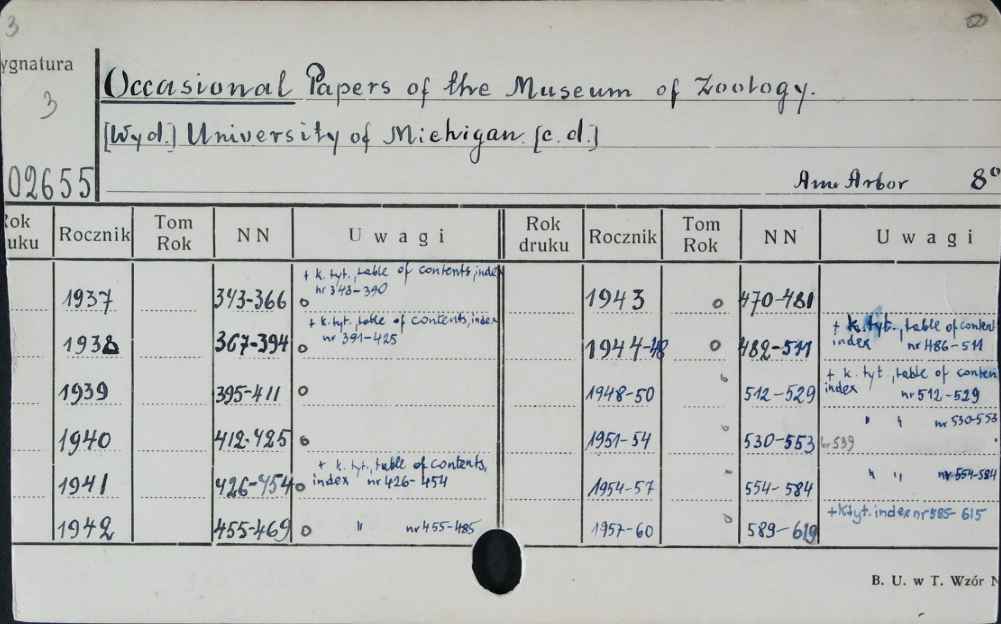 3
ygnatura
3
Occasional Papers of the Museum of Zoology.
[Wyd.] University of Michigan. [c.d.]
02655
Ann Arbor 8°
Rok druku Rocznik Tom Rok NN Uwagi Rok druku Rocznik Tom Rok NN Uwagi
+ k. tyt., table of contents, index
1937 343-366 o nr 343-390 1943 o 470-481
+ k. tyt., table of contents, index
1938 367-394 o nr 391-425 1944-48 o 482-511 + k. tyt., table of content
index nr 486-511
1939 395-411 o 1948-50 512-529 + k. tyt., table of conten
index nr 512-529
1940 412-425 o 1951-54 530-553 br 539 " " nr 530-553
+ k. tyt., table of contents,
1941 426-454 o index nr 426-454 1954-57 554-584 " " nr 554-584
1942 455-469 o " nr 455-485 1957-60 589-619 + k tyt. index nr 585-615
B. U. w T. Wzór N